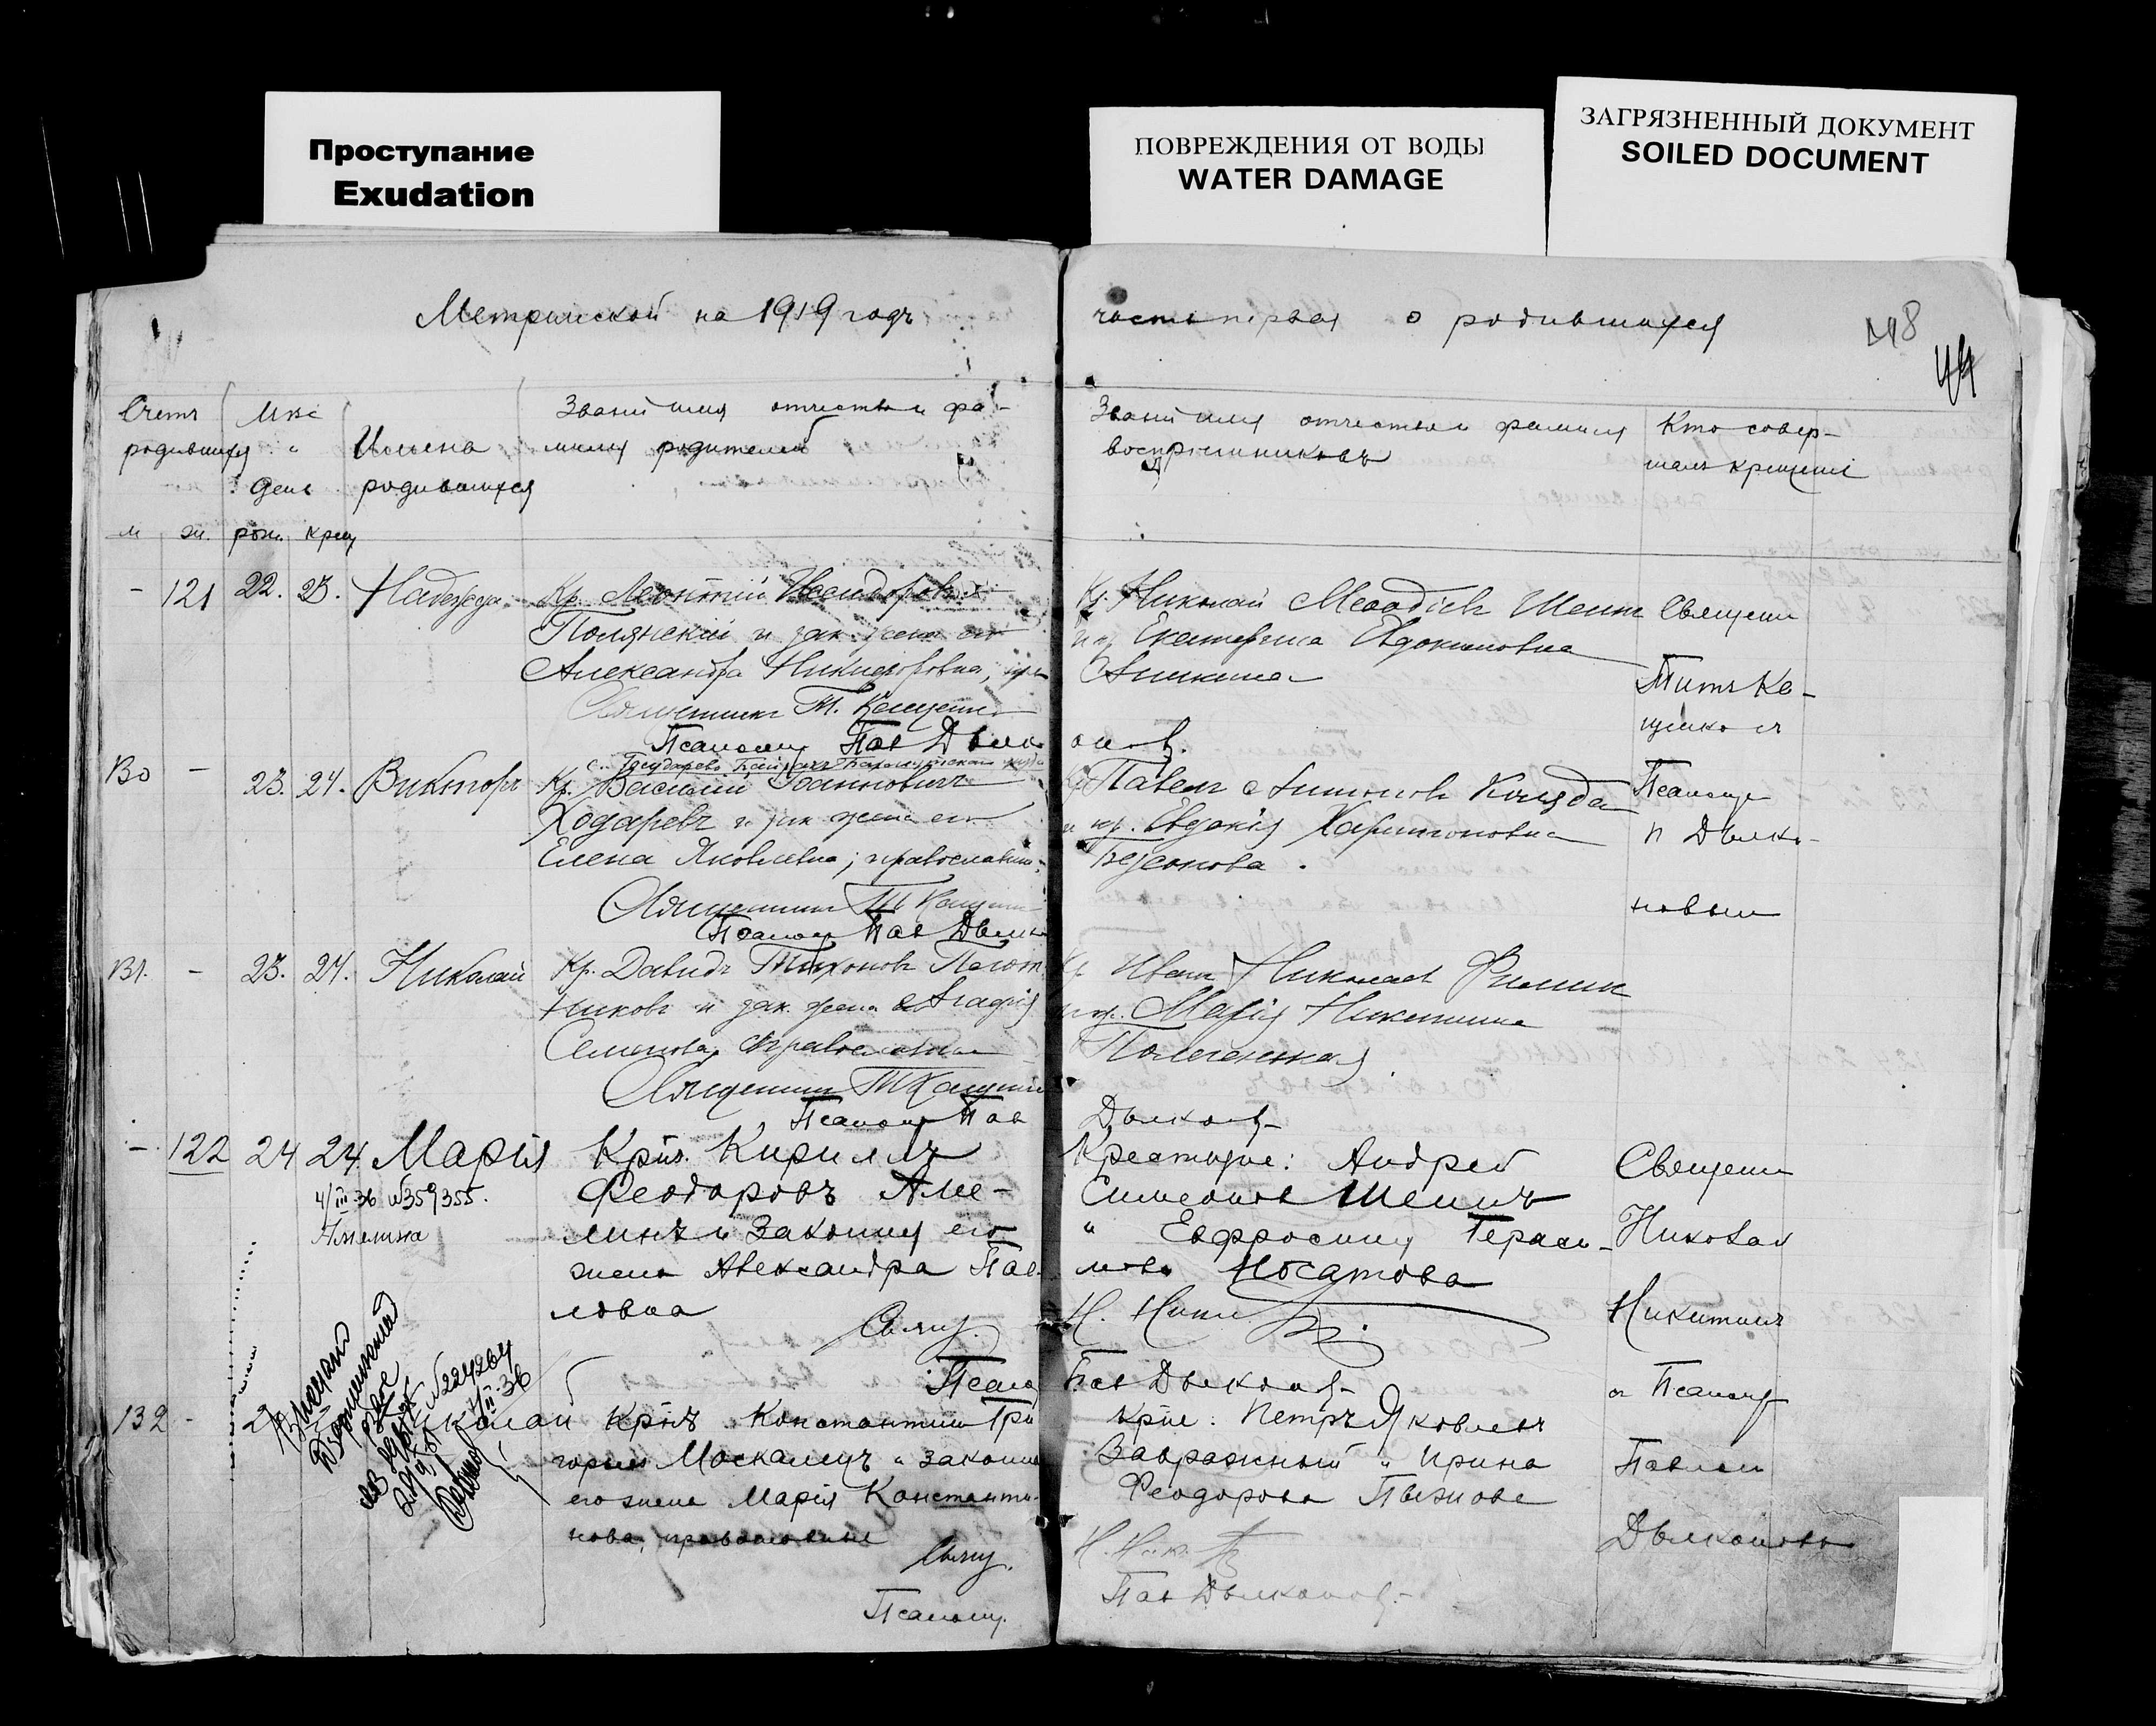 Проступание
Exudation
ПОВРЕЖДЕНИЯ ОТ ВОДЫ
WATER DAMAGE
ЗАГРЯЗНЕННЫЙ ДОКУМЕНТ
SOILED DOCUMENT
Метрической на 1919 годъ
часть первая о родившихся
48
44
Счетъ
родившихся
м ж.
Мѣс
и
день
рож. крещ
Имена
родившихся
Званіе имя отчество и фа-
милія родителей
Званіе имя отчество и фамилия
воспріемниковъ
Кто совер-
шалъ крещеніе
- 121 22. 23. Надежда
Кр. Леонтій Исидоровъ
Полянскій и зак. жена его
Александра Никифоровна,
Священникъ Т.
Псаломщ Пав Дьяк
Кр. Николай Меѳодіевъ Шеинъ
и кр. Екатерина Евдокимовна
Аникина
онов.
Священн
Титъ Ке-
130 - 23. 24. Викторъ
Кр. Василій Іоанновичъ
Ходаревъ и зак жена его
Елена Яковлевна; православн.
Священникъ Т
Псалом Пав Дьяк
Павелъ Антоновъ Коляда
и кр. Евдокія Харитоновна
Безсонова.
Псаломщ
П Дьяко-
новым
131. - 23. 24. Николай
Кр. Давидъ Тихоновъ Плот
никовъ и зак. жена его Агафія
Семенова, православн
Священник Т
Псаломщ Пав
Кр Иванъ Николаев
и кр. Марія Никитина
Дьяконов
- 122 24 24 Марія
4/III 36 №359355.
Амелина
Крнъ. Кириллъ
Феодоровъ Аме-
линъ и законная его
жена Александра Пав-
ловна
Свящ.
Псалом
Крестьяне: Андрей
Симеонов Шеинъ
" Евфросинія Гераси-
мова Носатова
Н. Ники
Пав Дьяконов
Священн
Николай
Никитинъ
и Псаломщ
Павлом
Дьяконовъ
132 - Николай
№224264
Крнъ Константинъ Гри
горьев Москалецъ и законн
его жена Марія Константи-
нова, православные
Свящ.
Псаломщ.
крне: Петръ Яковлевъ
Завражный и Ирина
Феодорова
Н. Ник.
Пав Дьяконов.